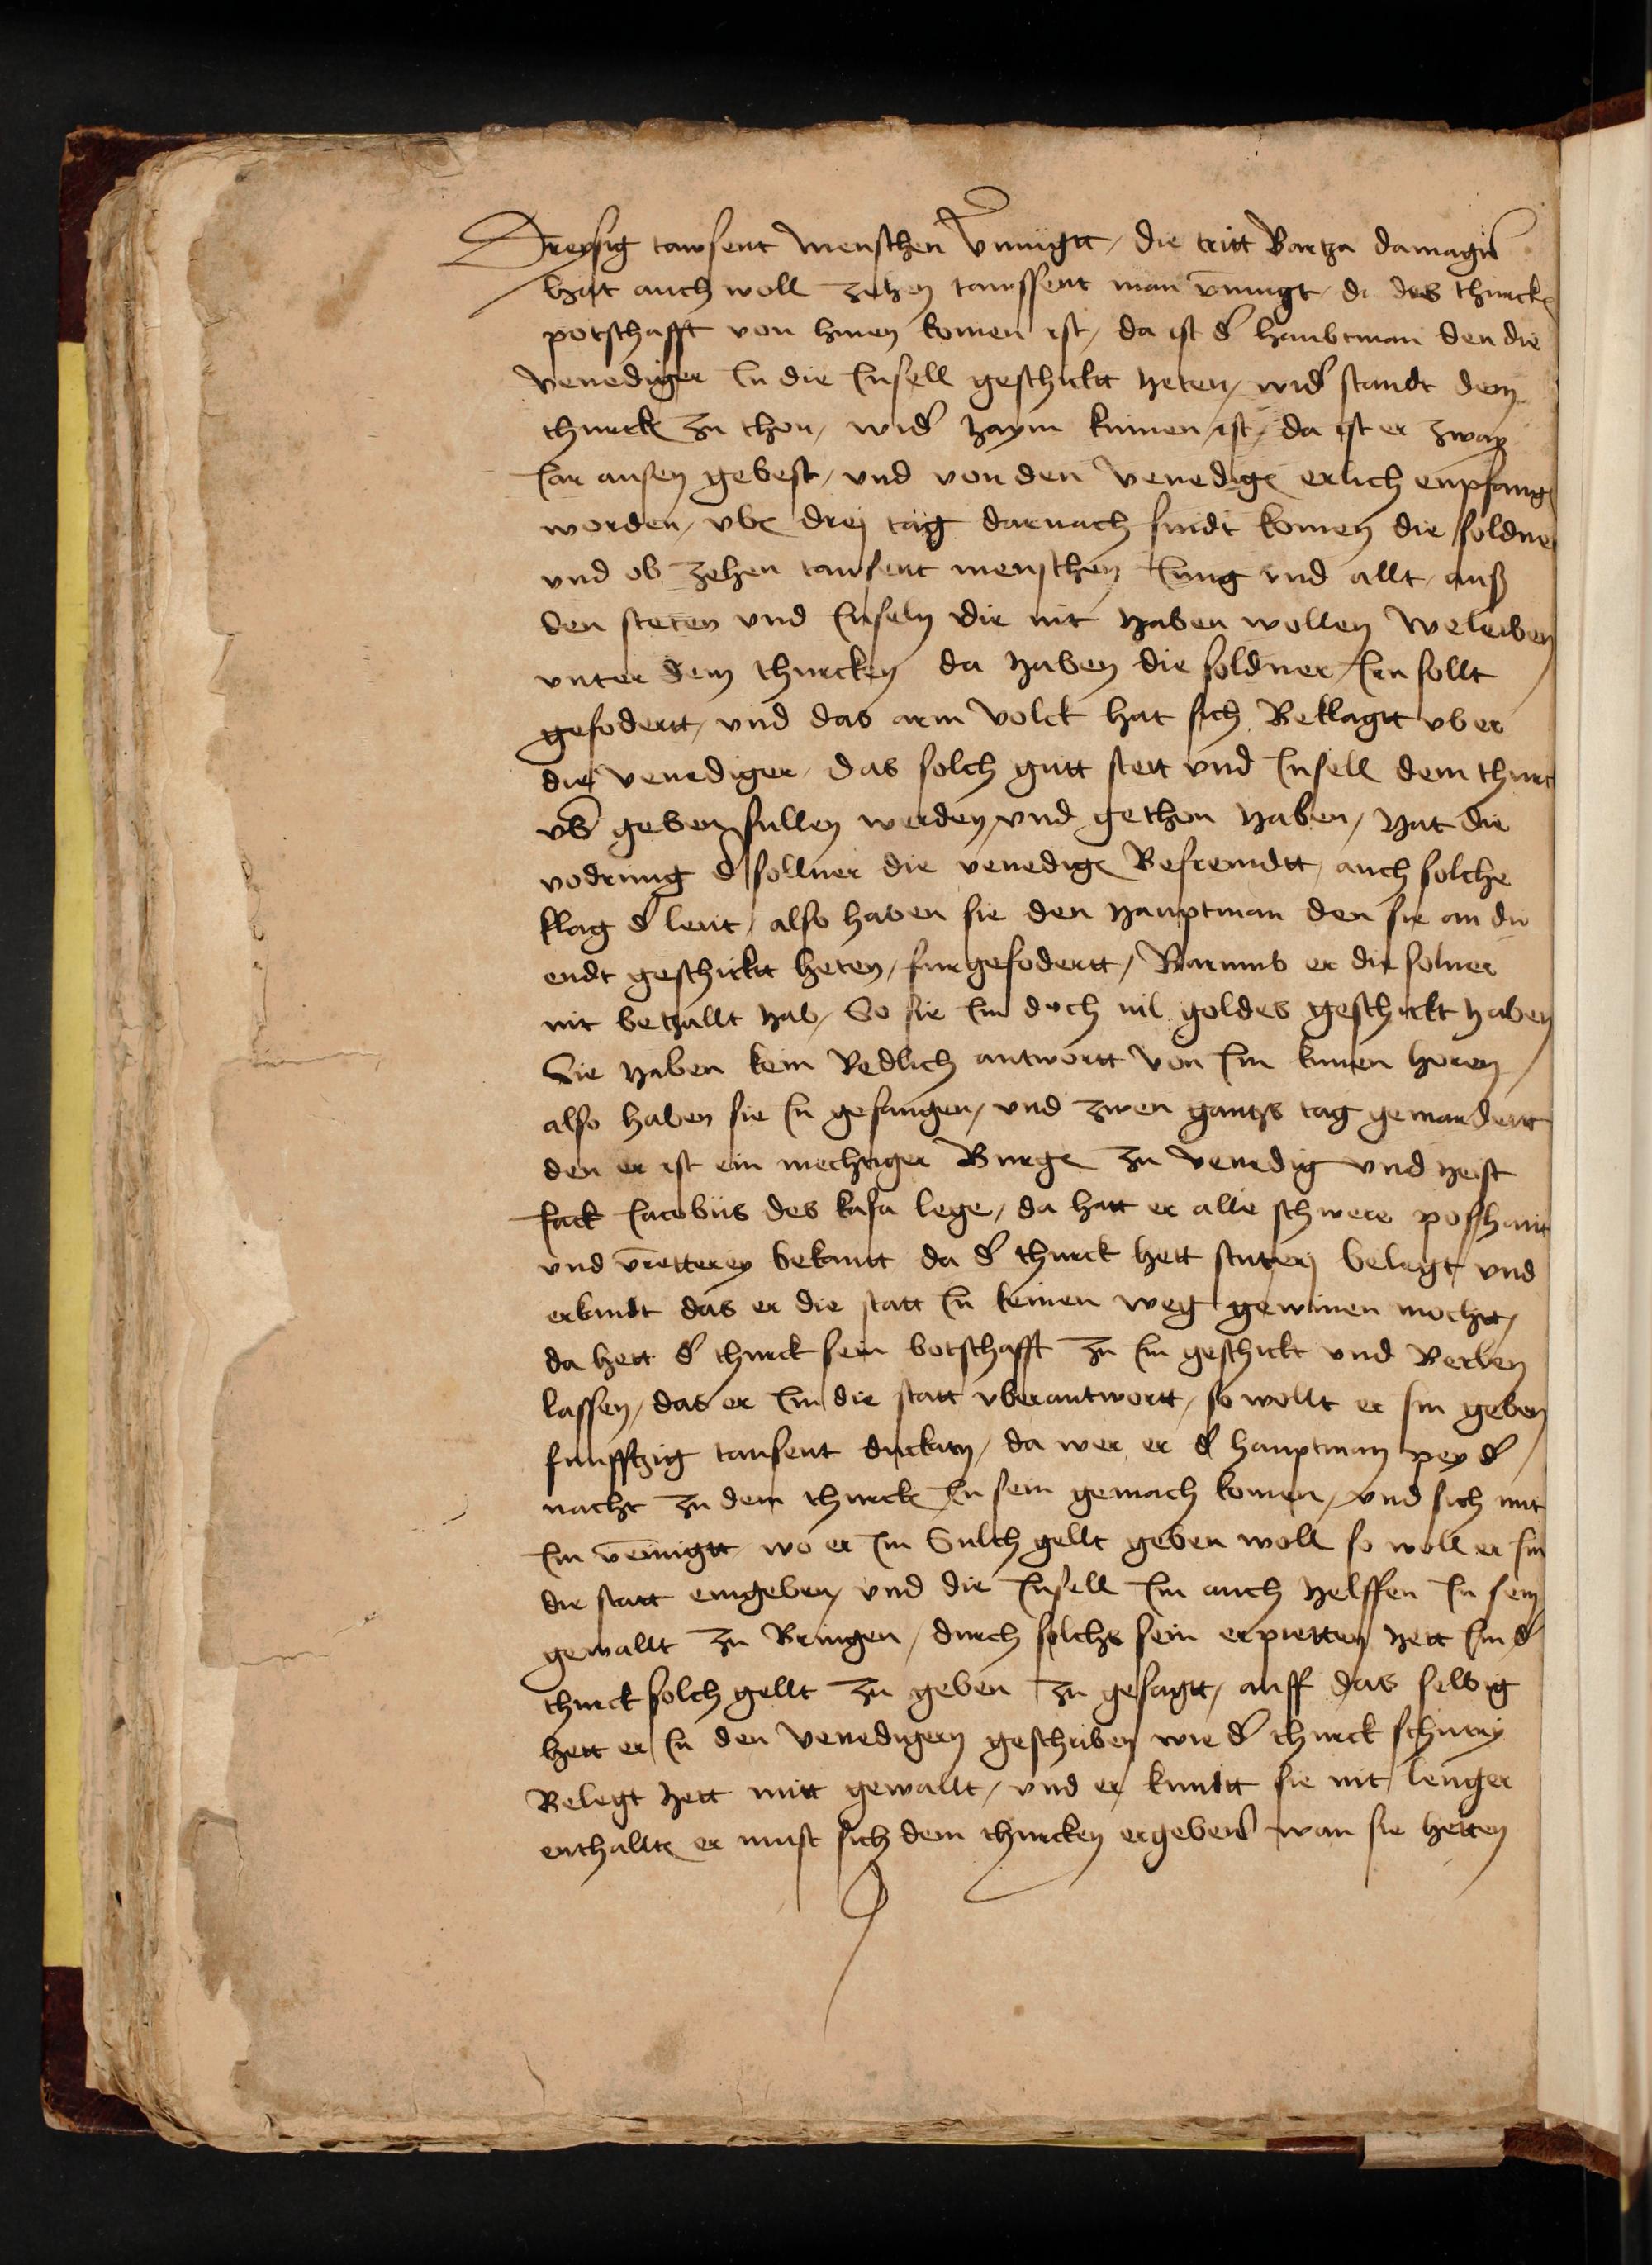 Dreysig tawsent menschen vermugtt / die tritt Bartza damagin
hat auch woll zehen tawssent man vermugt / da des thurcken
potschafft von hinen komen ist / da ist der haubtman den die
venediger In die Insell geschicktt heten / wider standt dem
thurcken zu thon / wider haym kumen ist / da ist er zway
Iar ausen gebest / und von den venediger erlich enpfangen
worden / uber drej tag darnach sindt komen die soldner
und ob zehen tausent menschen Iung und allt / auß
den steten und Inseln die nit haben wollen beleiben
unter dem thurcken da haben die soldner Iren sollt
gefodertt / und das arm volck hat sich Beklagtt uber
die venediger / das solch gutt stett und Insell dem thurcken
uber geben sullen werden / und gethon haben / hat die
vodrung der sollner die venediger Befremdtt / auch solche
klag der leut / also haben sie den hauptman den sie an die
endt geschicktt heten / furgefodertt / Warumb er die solner
nit betzallt hab / So sie Im doch vil goldes geschickt haben
Sie haben kein Redlich antwortt von Im kunen horen /
also haben sie In gefangen / und zwen gantzs tag gemardertt
den er ist ein mechtiger Burger zu venedig und heist
Iack Iacobus des kasa lege / da hatt er alle schwere poshait
und verretterey bekantt da der thurck hett scuterj belegt und
erkundt das er die statt In keinen weg gewinen mochtt /
da hett der thurck sein botschafft zu Im geschickt und Werben
lassen / das er Im die statt uberantwortt / so wollt er Im geben
funfftzig tausent duckatn / da wer er der hauptman pey der
nacht zu dem thurcken In sein gemach komen / und sich mit
Im vereinigtt wo er Im Sulch gellt geben woll so woll er Im
die statt eingeben / und die Insell Im auch helffen In sein
gewallt zu Bringen / durch solchs sein erpietten hett Im der
thurck solch gellt zu geben zu gesagtt / auff das selbig
hett er In den venedigern geschriben wie der thurck schutrj
Belegt hett mitt gewallt / und er kundtt sie nit lenger
enthallten er must sich dem thurcken ergeben wan sie hetten